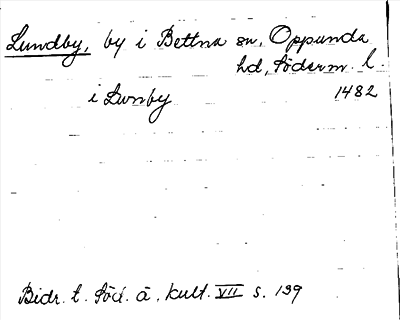 Lundby, by i Bettna sn, Oppunda
hd, Söderm. l.
i Lunby 1482
Bidr. t. Söd. ä. kult. VII s. 139